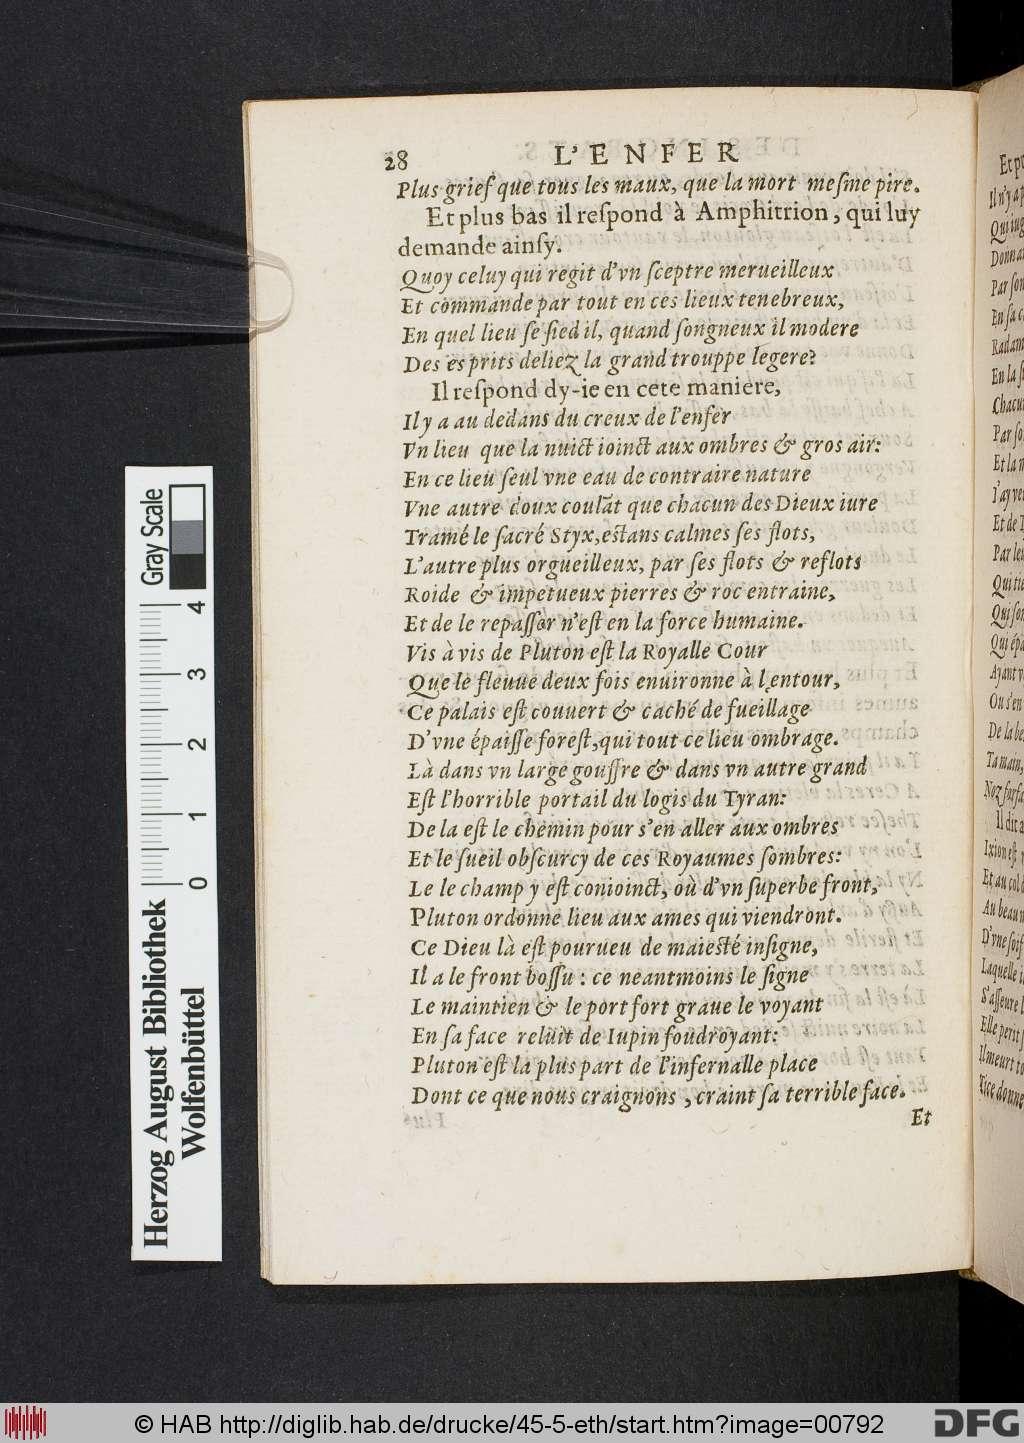 28 L'ENFER
Plus grief que tous les maux, que la mort meſme pire.
Et plus bas il reſpond à Amphitrion, qui luy
demande ainſy.
Quoy celuy qui regit d'vn ſceptre merueilleux
Et commande par tout en ces lieux tenebreux,
En quel lieu ſe ſied il, quand ſongneux il modere
Des esprits deliez la grand trouppe legere?
Il reſpond dy-ie en cete maniere,
Il y a au dedans du creux de l'enfer
Vn lieu que la nuict ioinct aux ombres & gros air:
En ce lieu ſeul vne eau de contraire nature
Vne autre doux coulãt que chacun des Dieux iure
Tramé le ſacré Styx, eſtans calmes ſes flots,
L'autre plus orgueilleux, par ſes flots & reflots
Roide & impetueux pierres & roc entraine,
Et de le repaſſer n'eſt en la force humaine.
Vis à vis de Pluton eſt la Royalle Cour
Que le fleuue deux fois enuironne à l'entour,
Ce palais eſt couuert & caché de fueillage
D'vne épaiſſe foreſt, qui tout ce lieu ombrage.
Là dans vn large gouffre & dans vn autre grand
Eſt l'horrible portail du logis du Tyran:
De la eſt le chemin pour s'en aller aux ombres
Et le ſueil obſcurcy de ces Royaumes ſombres:
Le le champ y eſt conioinct, où d'vn ſuperbe front,
Pluton ordonne lieu aux ames qui viendront.
Ce Dieu là eſt pourueu de maieſté inſigne,
Il a le front boſſu : ce neantmoins le ſigne
Le maintien & le port fort graue le voyant
En ſa face reluit de Iupin foudroyant:
Pluton eſt la plus part de l'infernalle place
Dont ce que nous craignons, craint ſa terrible face.
Et
Gray Scale
4 3 2 1 0
Herzog August Bibliothek
Wolfenbüttel
© HAB http://diglib.hab.de/drucke/45-5-eth/start.htm?image=00792
DFG